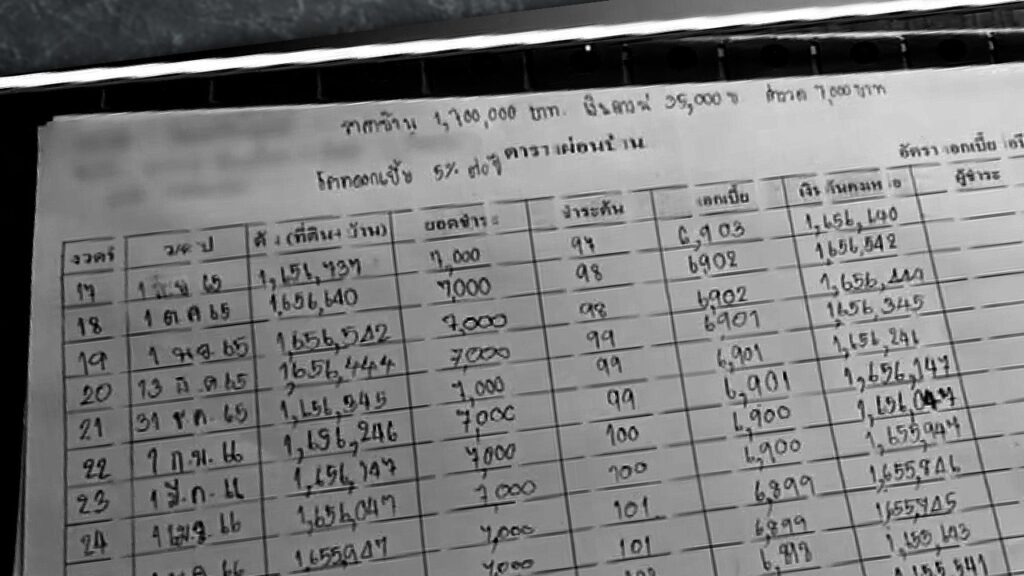 ราคาบ้าน 1,700,000 บาท. เงินดาวน์ 35,000 บ. ส่งงวด 7,000 บาท
ตารางผ่อนบ้าน
โดยดอกเบี้ย 5% ต่อปี
อัตราดอกเบี้ย
งวดที่ ว/ด/ป (ที่ดิน+บ้าน) ยอดชำระ ชำระต้น ดอกเบี้ย เงินต้นคงเหลือ ผู้ชำระ
17 65 1,656,737 7,000 97 6,903 1,656,640
18 1 ต ค 65 1,656,640 7,000 98 6902 1,656,542
19 1 พ.ย 65 1,656,542 7,000 98 6902 1,656,444
20 65 1,656,444 7,000 99 6,901 1,656,345
21 31 ธ.ค. 65 1,656,345 7,000 99 6,901 1,656,246
22 1 ก.พ. 66 1,656,246 7,000 99 6,901 1,656,147
23 1 มี.ค. 66 1,656,147 7,000 100 6,900 1,656,047
24 1 เม.ย 66 1,656,047 7,000 100 6,900 1,655,947
66 1655,947 7,000 101 6,899 1,655,846
7,000 101 6,899 1,655,745